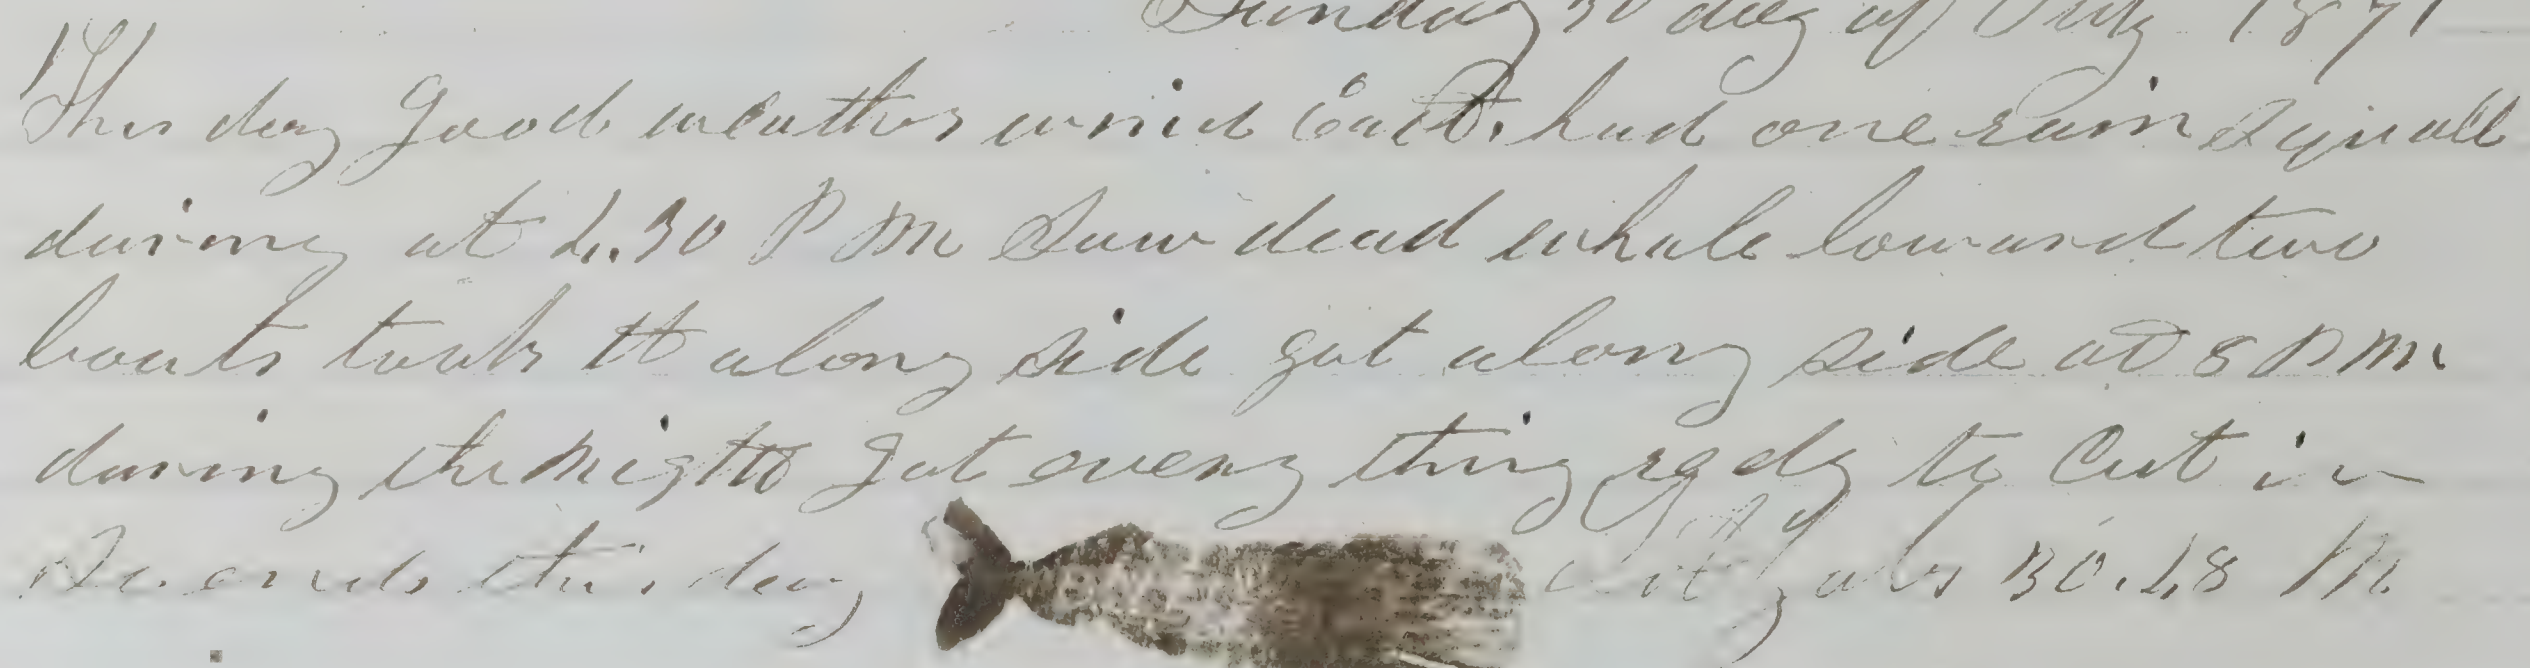 Sunday 30 day of July 1871
This day good weather wind East. had one rain squall
during at 4.30 P M Saw dead whale loward two
boats took it along side got along side at 8 P M
during the night got every thing redy to Cut in
So ends this day